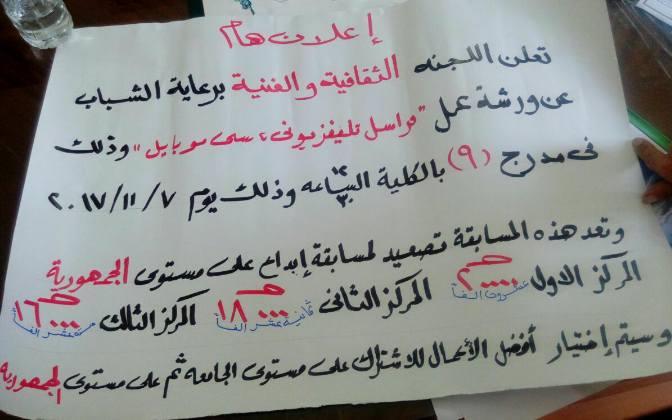 إعلان هام
تعلن اللجنه الثقافية والفنية برعاية الشباب
عن ورشة عمل "مراسل تليفزيونى ، سى موبايل" وذلك
فى مدرج (٩) بالكلية الساعه ٢ وذلك يوم ٢٠١٧/١١/٧
وتعد هذه المسابقة تصعيد لمسابقة إبداع على مستوى الجمهورية
المركز الاول ٢٠٠٠٠ عشرون الفاً المركز الثانى ١٨٠٠٠ ثمانية عشر الفاً المركز الثالث ١٦٠٠٠ ستة عشر الفاً
وسيتم إختيار أفضل الأعمال للاشتراك على مستوى الجامعه ثم على مستوى الجمهورية